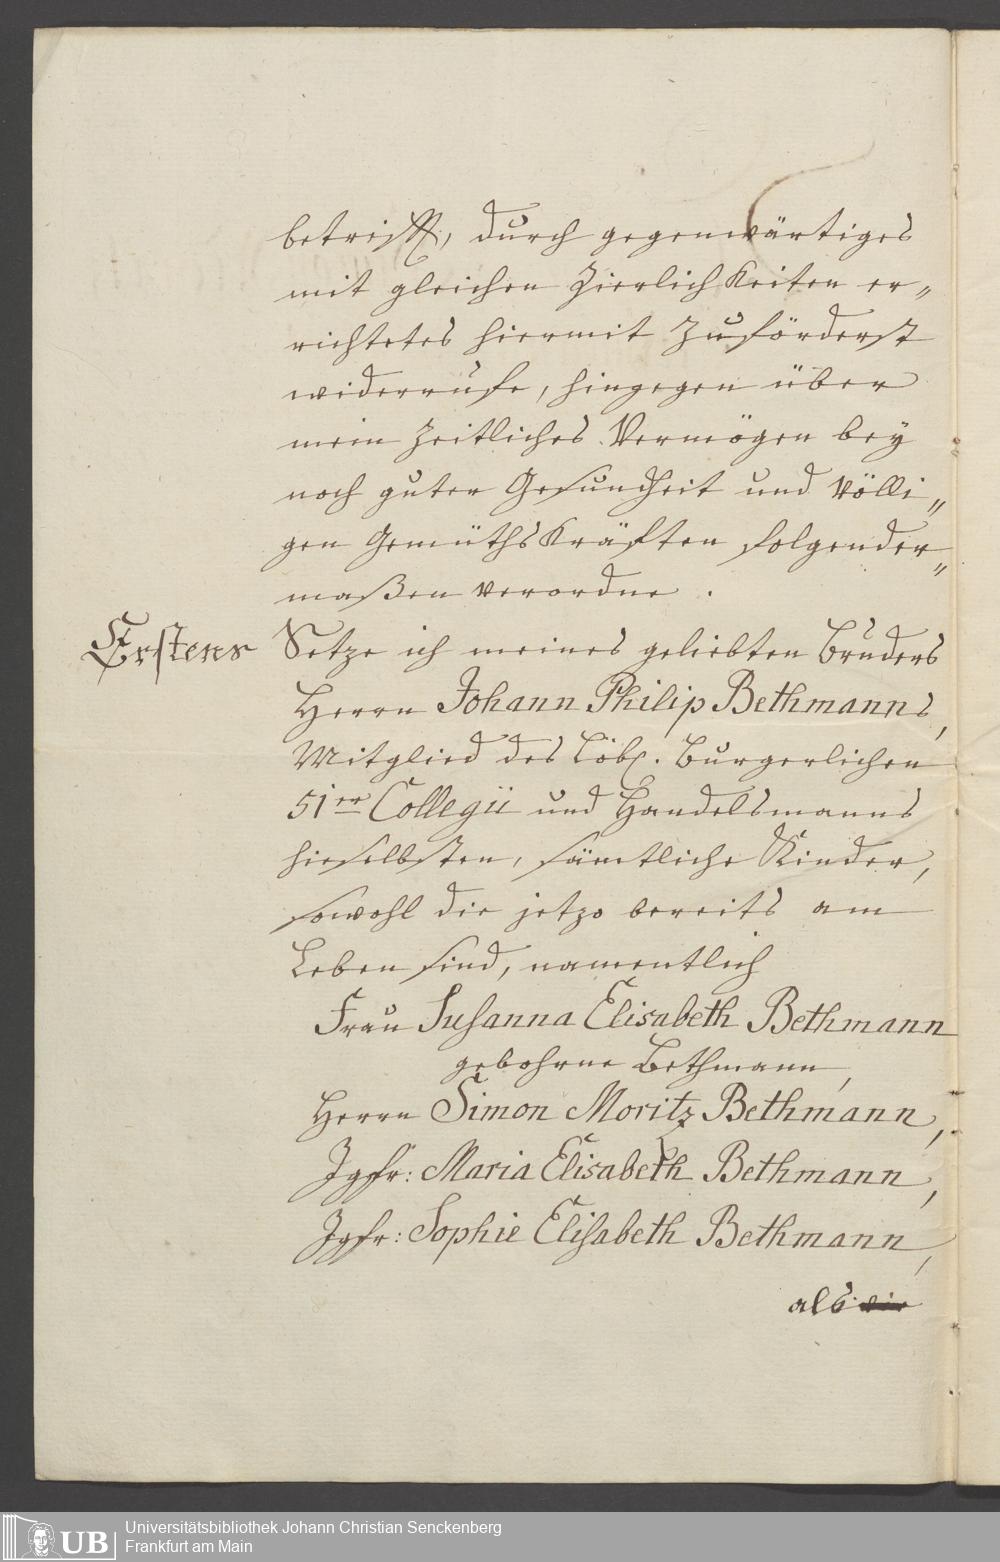 betrifft, durch gegenwärtiges
mit gleichen Zierlichkeiten er„
richtetes hiermit zuförderst
widerrufe, hingegen über
mein zeitliches Vermögen bey
noch guter Gesundheit und völli„
gen Gemüthskräften folgender„
maßen verordne.
Erstens Setze ich meines geliebten Bruders
Herrn Johann Philip Bethmanns,
Mitglied des Löbl. Burgerlichen
51er Collegii und Handelsmanns
hieselbsten, sämtliche Kinder,
sowohl die jetzo bereits am
Leben sind, namentlich
Frau Susanna Elisabeth Bethmann
gebohrne Bethmann,
Herrn Simon Moritz Bethmann,
Jgfr: Maria Elisabeth Bethmann,
Jgfr: Sophie Elisabeth Bethmann,
als
UB
Universitätsbibliothek Johann Christian Senckenberg
Frankfurt am Main